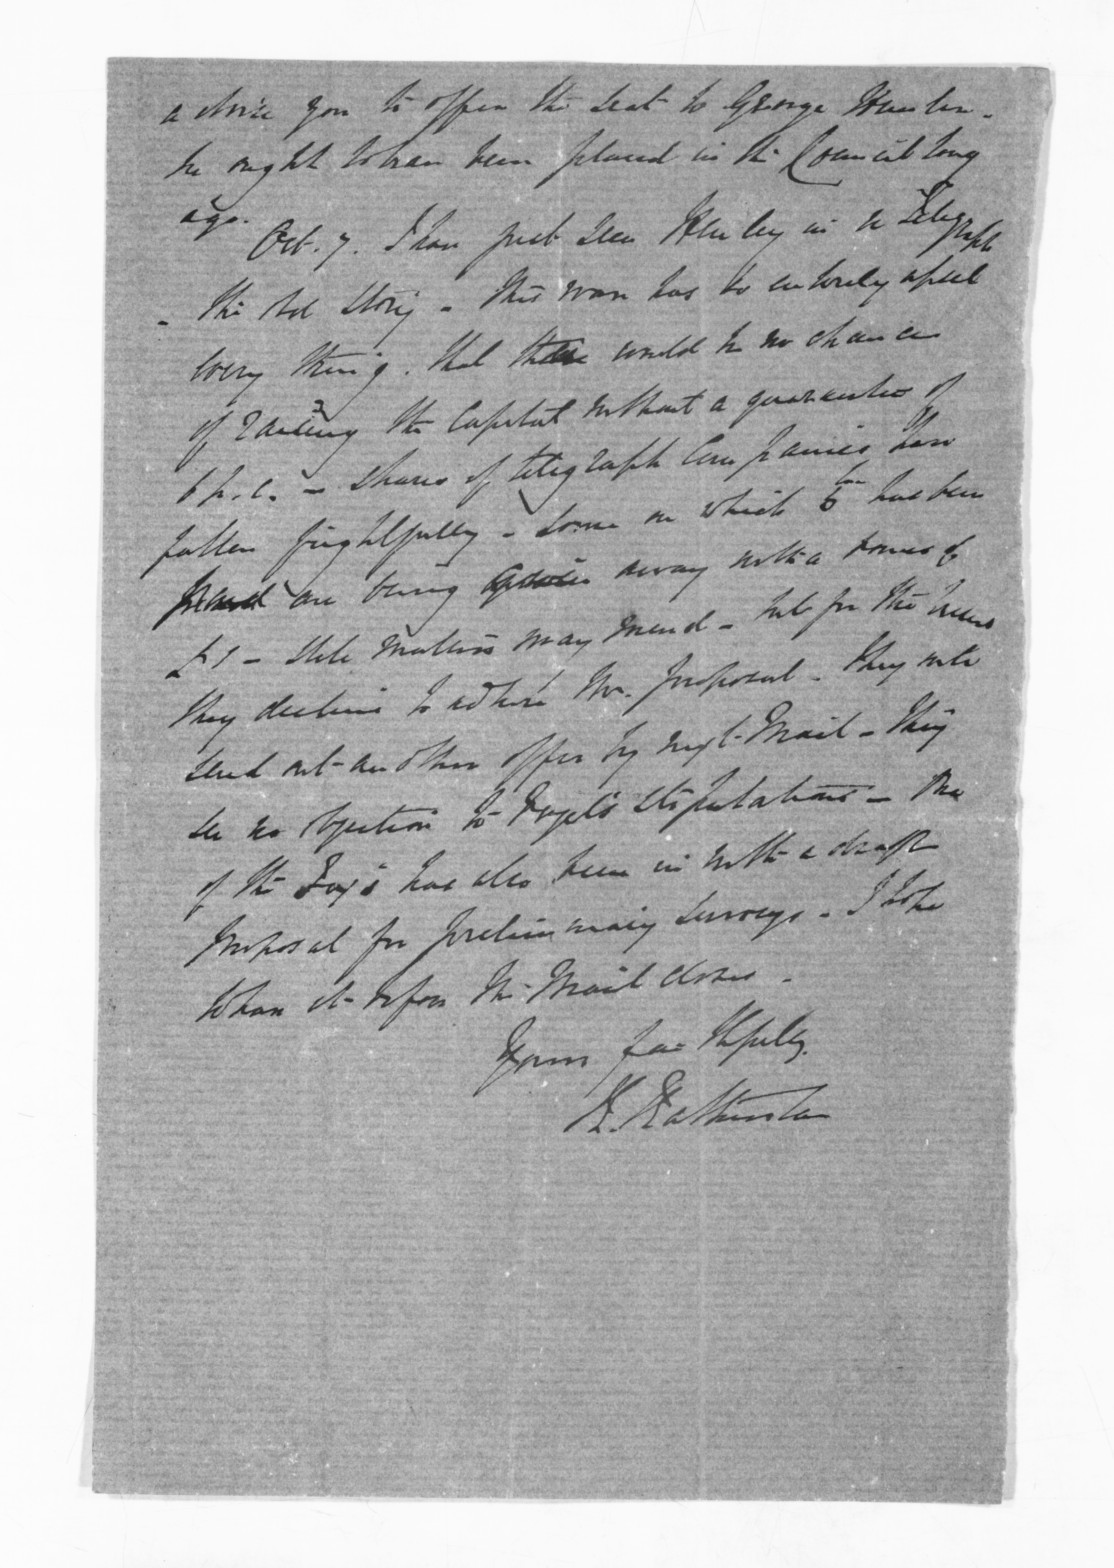 advise you to offer the seat to George Hunter -
he ought to have been placed in the Council long
ago.
Oct. 7. I have just seen Henley in re Telegraph
- the old story - this war has so entirely upset
every thing. that there would be no chance
of raising the Capital without a guarantee of
6 p.c. - Shares of telegraph Companies have
fallen frightfully - Some on which has been
paid are being away with a bonus of
£1 - still matters may mend - but for the
they decline to adhere their proposal - they will
send out another offer by next Mail - they
see no objection to Vogel's stipulations - One
of the Fox's has also been in with a draft
proposal for preliminary surveys - I hope
to have it before the Mail closes -
Yours faithfully
Featherston